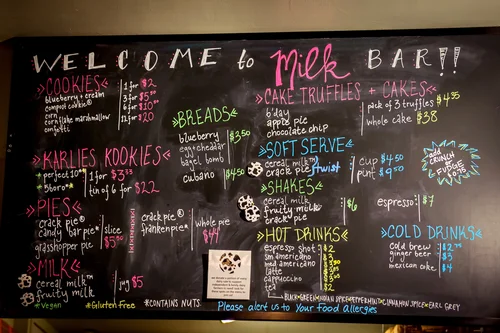 WELCOME to Milk BAR!!
COOKIES
blueberry + cream
compost cookie®
corn
cornflake marshmallow
confetti
1 for $2
3 for
6 for $10
12 for $20
KARLIES KOOKIES
*perfect 10*
*5boro*
1 for $3
tin of 6 for $22
PIES
crack pie®
candy bar pie
grasshopper pie
slice
crack pie®
frankenpie
whole pie
$44
MILK
cereal milk™
fruity milk
jug $5
*Vegan
*Gluten Free
*CONTAINS NUTS
BREADS
blueberry
egg cheddar
bagel bomb
$3.50
cubano
CAKE TRUFFLES + CAKES
b'day
apple pie
chocolate chip
pack of 3 truffles $4.35
whole cake $38
SOFT SERVE
cereal milk™
crack pie®
twist
cup $4.50
pint $9.50
add CRUNCH or FUDGE
SHAKES
cereal milk™
fruity milk
crack pie
$6
espresso $7
HOT DRINKS
espresso shot $2
sm americano
med americano
latte
cappuccino
tea
BLACK GREEN INDIAN SPICE PEPPERMINT CINNAMON SPICE EARL GREY
COLD DRINKS
cold brew
ginger beer $3
mexican coke $4
Please alert us to your food allergies